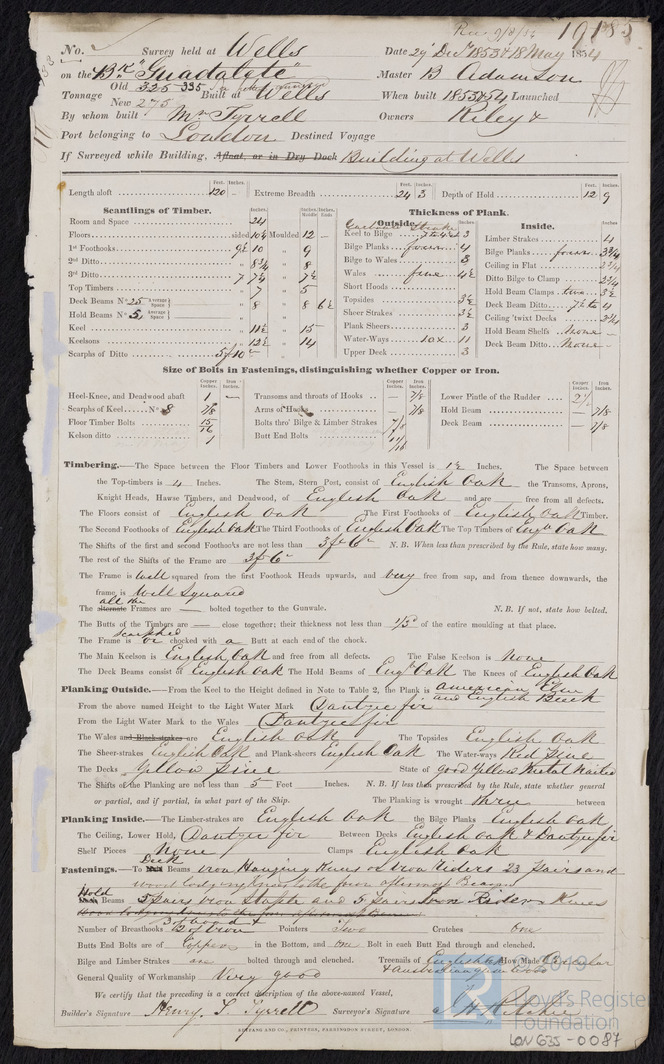 Rec 9/8/54 19183
No. Survey held at Wells Date 29 Decr 1853 & 18 May 1854
on the Bk "Guadalete" Master B Adamson
Tonnage Old 325 335 New 275 Built at Wells When built 1853 & 54 Launched
By whom built Mr Tyrrell Owners Riley &
Port belonging to London Destined Voyage
If Surveyed while Building, Afloat, or in Dry Dock Building at Wells
Feet. Inches. Feet. Inches. Feet. Inches.
Length aloft 120 – Extreme Breadth 24 3 Depth of Hold 12 9
Scantlings of Timber.
Room and Space 24
Floors sided 10¼ Moulded 12 –
1st Foothooks 9½ 10 " 9
2nd Ditto " 8¾ " 8
3rd Ditto 7 7¼ " 7½
Top Timbers " 7 " 5
Deck Beams No 25 Average Space " 8 " 8 6½
Hold Beams No 5 Average Space
Keel " 11½ " 15
Keelsons " 12½ " 14
Scarphs of Ditto 5f10
Thickness of Plank.
Outside.
Garboard Strake
Keel to Bilge 3
Bilge Planks four 4
Bilge to Wales 3
Wales five 4½
Short Hoods
Topsides 3½
Sheer Strakes 3½
Plank Sheers 3
Water-Ways 10 x 11
Upper Deck 3
Inside.
Limber Strakes 4
Bilge Planks four 3¾
Ceiling in Flat 2¾
Ditto Bilge to Clamp 2¾
Hold Beam Clamps two 3½
Deck Beam Ditto 7½ to 4
Ceiling 'twixt Decks 2¾
Hold Beam Shelfs None –
Deck Beam Ditto None –
Size of Bolts in Fastenings, distinguishing whether Copper or Iron.
Copper Inches. Iron Inches. Copper Inches. Iron Inches.
Heel-Knee, and Deadwood abaft 1 –
Scarphs of Keel No 8 7/8
Floor Timber Bolts 15/16
Kelson ditto 1
Transoms and throats of Hooks – 7/8
Arms of Hooks – 7/8
Bolts thro' Bilge & Limber Strakes 7/8
Butt End Bolts 11/16
Lower Pintle of the Rudder 2½
Hold Beam — 7/8
Deck Beam — 7/8
Timbering.—The Space between the Floor Timbers and Lower Foothooks in this Vessel is 1½ Inches. The Space between
the Top-timbers is 4 Inches. The Stem, Stern Post, consist of English Oak the Transoms, Aprons,
Knight Heads, Hawse Timbers, and Deadwood, of English Oak and are — free from all defects.
The Floors consist of English Oak The First Foothooks of English Oak Timber.
The Second Foothooks of English Oak The Third Foothooks of English Oak The Top Timbers of Engh Oak
The Shifts of the first and second Foothooks are not less than 3ft 6in N. B. When less than prescribed by the Rule, state how many.
The rest of the Shifts of the Frame are 3ft 6in
The Frame is well squared from the first Foothook Heads upwards, and very free from sap, and from thence downwards, the
frame is Well Squared
The alternate all the Frames are — bolted together to the Gunwale. N. B. If not, state how bolted.
The Butts of the Timbers are — close together; their thickness not less than 1/3d of the entire moulding at that place.
The Frame is scarphed or chocked with a Butt at each end of the chock.
The Main Keelson is English Oak and free from all defects. The False Keelson is None
The Deck Beams consist of English Oak The Hold Beams of Engh Oak The Knees of English Oak
Planking Outside.—From the Keel to the Height defined in Note to Table 2, the Plank is American Elm and English Beech
From the above named Height to the Light Water Mark Dantzic fir
From the Light Water Mark to the Wales Dantzic fir
The Wales and Black-strakes are English Oak The Topsides English Oak
The Sheer-strakes English Oak and Plank-sheers English Oak The Water-ways Red Pine
The Decks Yellow Pine State of good Yellow Metal Nailed
The Shifts of the Planking are not less than 5 Feet Inches. N. B. If less than prescribed by the Rule, state whether general
or partial, and if partial, in what part of the Ship. The Planking is wrought three between
Planking Inside.—The Limber-strakes are English Oak the Bilge Planks English Oak
The Ceiling, Lower Hold, Dantzic fir Between Decks English Oak & Dantzic fir
Shelf Pieces None Clamps English Oak
Fastenings.—To Deck Beams Iron Hanging Knees or Iron Riders 23 pairs and
wood lodging knees to the four aftermost Beams
Hold Beams 5 pairs Iron Staple and 5 pairs Iron Rider Knees
Number of Breasthooks 3 of wood & 3 of Iron Pointers Two Crutches One
Butts End Bolts are of Copper in the Bottom, and one Bolt in each Butt End through and clenched.
Bilge and Limber Strakes are bolted through and clenched. Treenails of English Oak & Australian gum wood How Made Circular
General Quality of Workmanship Very good
We certify that the preceding is a correct description of the above-named Vessel,
Builder's Signature Henry T. Tyrrell Surveyor's Signature J H Ritchie
KETTANG AND CO., PRINTERS, FARRINGDON STREET, LONDON.
LR © 2019
Lloyd's Register Foundation
LON 635-0087